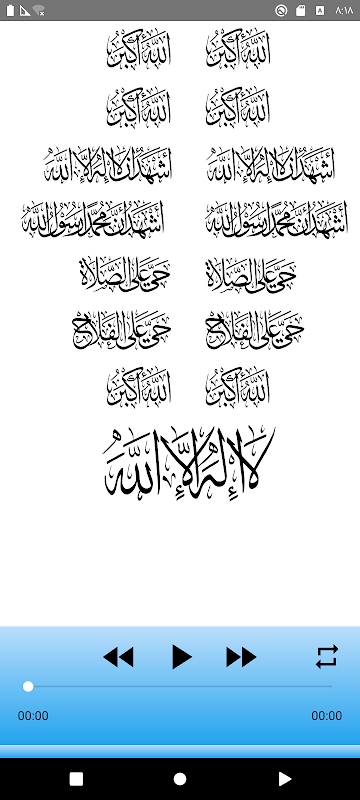 ٨:١٨
الله أكبر الله أكبر
الله أكبر الله أكبر
أشهد أن لا إله إلا الله أشهد أن لا إله إلا الله
أشهد أن محمدا رسول الله أشهد أن محمدا رسول الله
حي على الصلاة حي على الصلاة
حي على الفلاح حي على الفلاح
الله أكبر الله أكبر
لا إله إلا الله
00:00 00:00